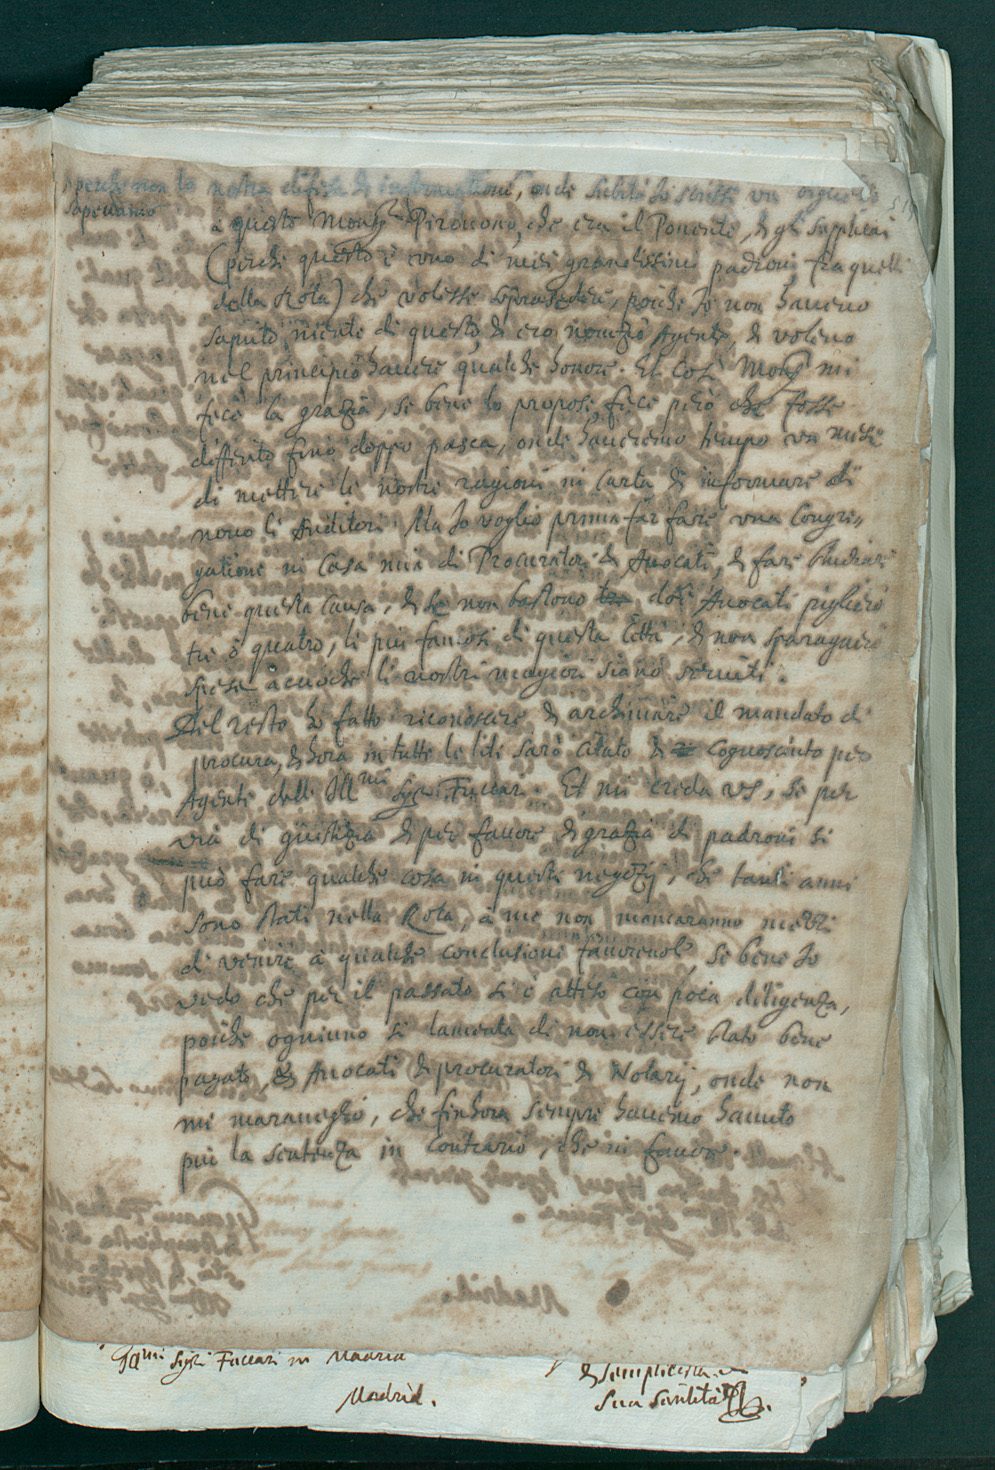 perche non la nostra difesa & informatione, onde subito Io scrissi un viglietto
sapevamo
à questo Monsr Pirouono, che era il Ponente, & gli supplicai
(perche questo è uno di miei grandissimi padroni fra quelli
della Rota) che volesse soprasedere, poiche Io non haueuo
saputo niente di questo, & ero nouizio Agente, & voleuo
nel principio hauere qualche honore. Et così Monsr mi
fece la grazia, se bene lo propose, fece però che fosse
differito fino doppo pasca, onde haueremo tempo un mese
di mettere le nostre ragioni in carta & informare di
nouo li Auditori. Ma Io voglio prima far fare una Congre„
gatione in Casa mia di Procuratori & Auocati, & fare studiare
bene questa causa, & se non bastono doi Auocati piglierò
tre ò quatro, li più famosi di questa Città, & non sparagnerò
spese acciòche li nostri magiori siano seruiti.
Del resto hò fatto riconoscere & archiuiare il mandato di
procura, & hora in tutte le liti sarò citato & cognosciuto per
Agente delli Illmi Sigri Fuccari. Et mi creda VS, se per
via di giustizia & per fauore & grazia di padroni si
può fare qualche cosa in questi negozij, che tanti anni
sono stati nella Rota, à me non mancaranno mezzi
di venire à qualche conclusione fauoreuole, se bene Io
vedo che per il passato si è atteso con poca diligenza,
poiche ogniuno si lamenta di non essere stato bene
pagato, Auocati & procuratori & Notarij, onde non
mi marauiglio, che finhora sempre hauemo hauuto
più la sentenza in contrario, che in fauore.
Illmi Sigri Fuccari in Madrid
& semplicità
Madrid.
Sua Santità